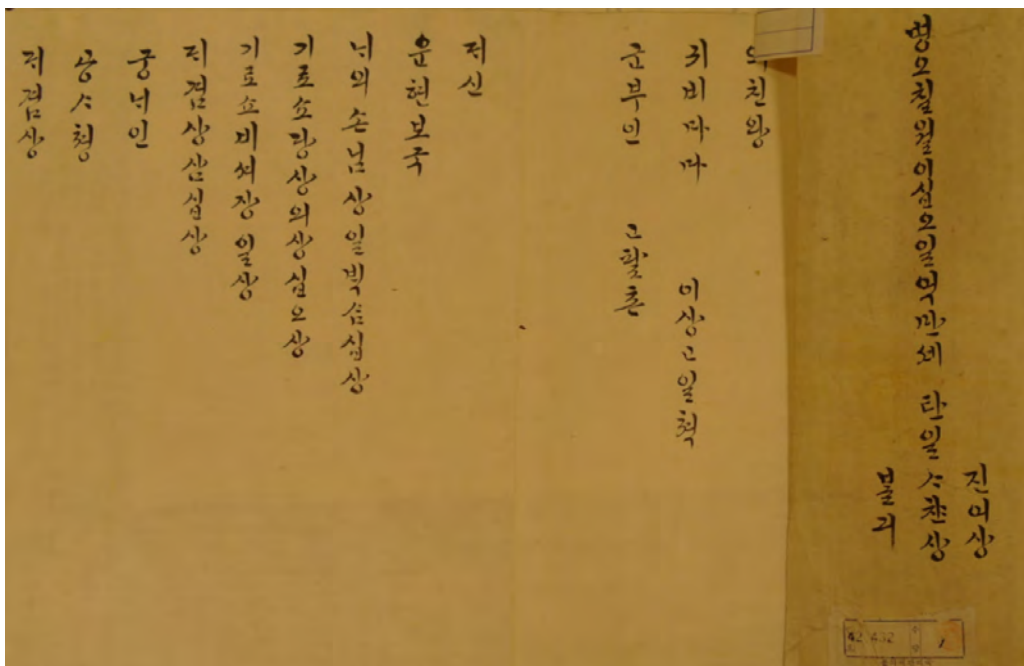 병오칠월이십오일억만세 탄일
진어상
ᄉᆞ찬상
볼긔
의친왕
귀비마마 이상고일쳑
군부인 고팔촌
져신
운현보국
ᄂᆡ외손님상일ᄇᆡᆨ삼십상
기로쇼당상의상십오상
기로쇼비셔장일상
져겸상삼십상
궁ᄂᆡ인
공ᄉᆞ쳥
져겸상